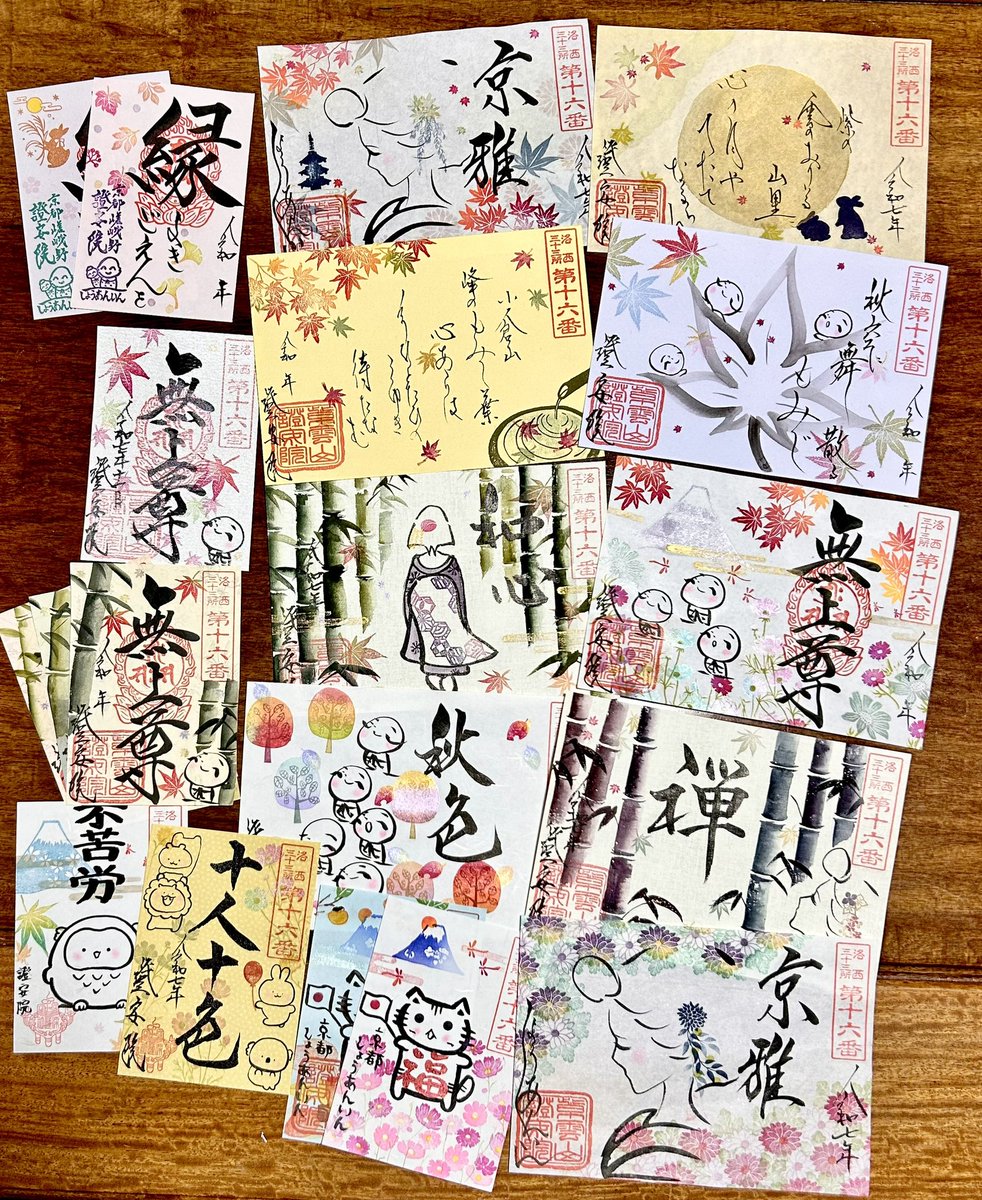 縁
よきごえんを
令和 年
京都嵯峨野
證安院
しょうあんいん
京都嵯峨野
證安院
しょうあんいん
京雅
洛西
三十三所
第十六番
令和七年
しょうあんいん
洛西
三十三所
第十六番
山里
心の月や
令和七年
證安院
洛西
三十三所
第十六番
小倉山
峰のもみぢ葉
心あらば
待たなむ
令和 年
證安院
紫雲山
證安院
洛西
三十三所
第十六番
秋空に
舞い散る
もみじ
令和 年
證安院
紫雲山
證安院
洛西
三十三所
第十六番
無上尊
令和七年十一月
證安院
洛西
三十三所
第十六番
和心
令和七年
證安院
洛西
三十三所
第十六番
無上尊
令和 年
證安院
洛西
三十三所
第十六番
無上尊
令和 年
證安院
秋色
洛西
三十三所
第十六番
禅
令和七年
證安院
不苦労
證安院
洛西
三十三所
第十六番
十人十色
令和七年
證安院
京都
しょうあんいん
福
京都
しょうあんいん
洛西
三十三所
第十六番
京雅
令和七年
しょうあんいん
紫雲山
證安院